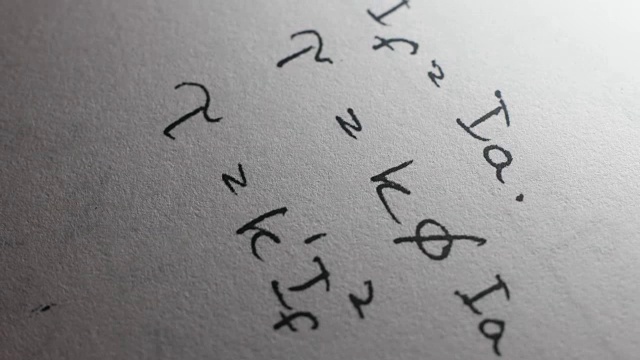 I_f = I_a.
τ = k ϕ I_a
τ = k' I_f^2